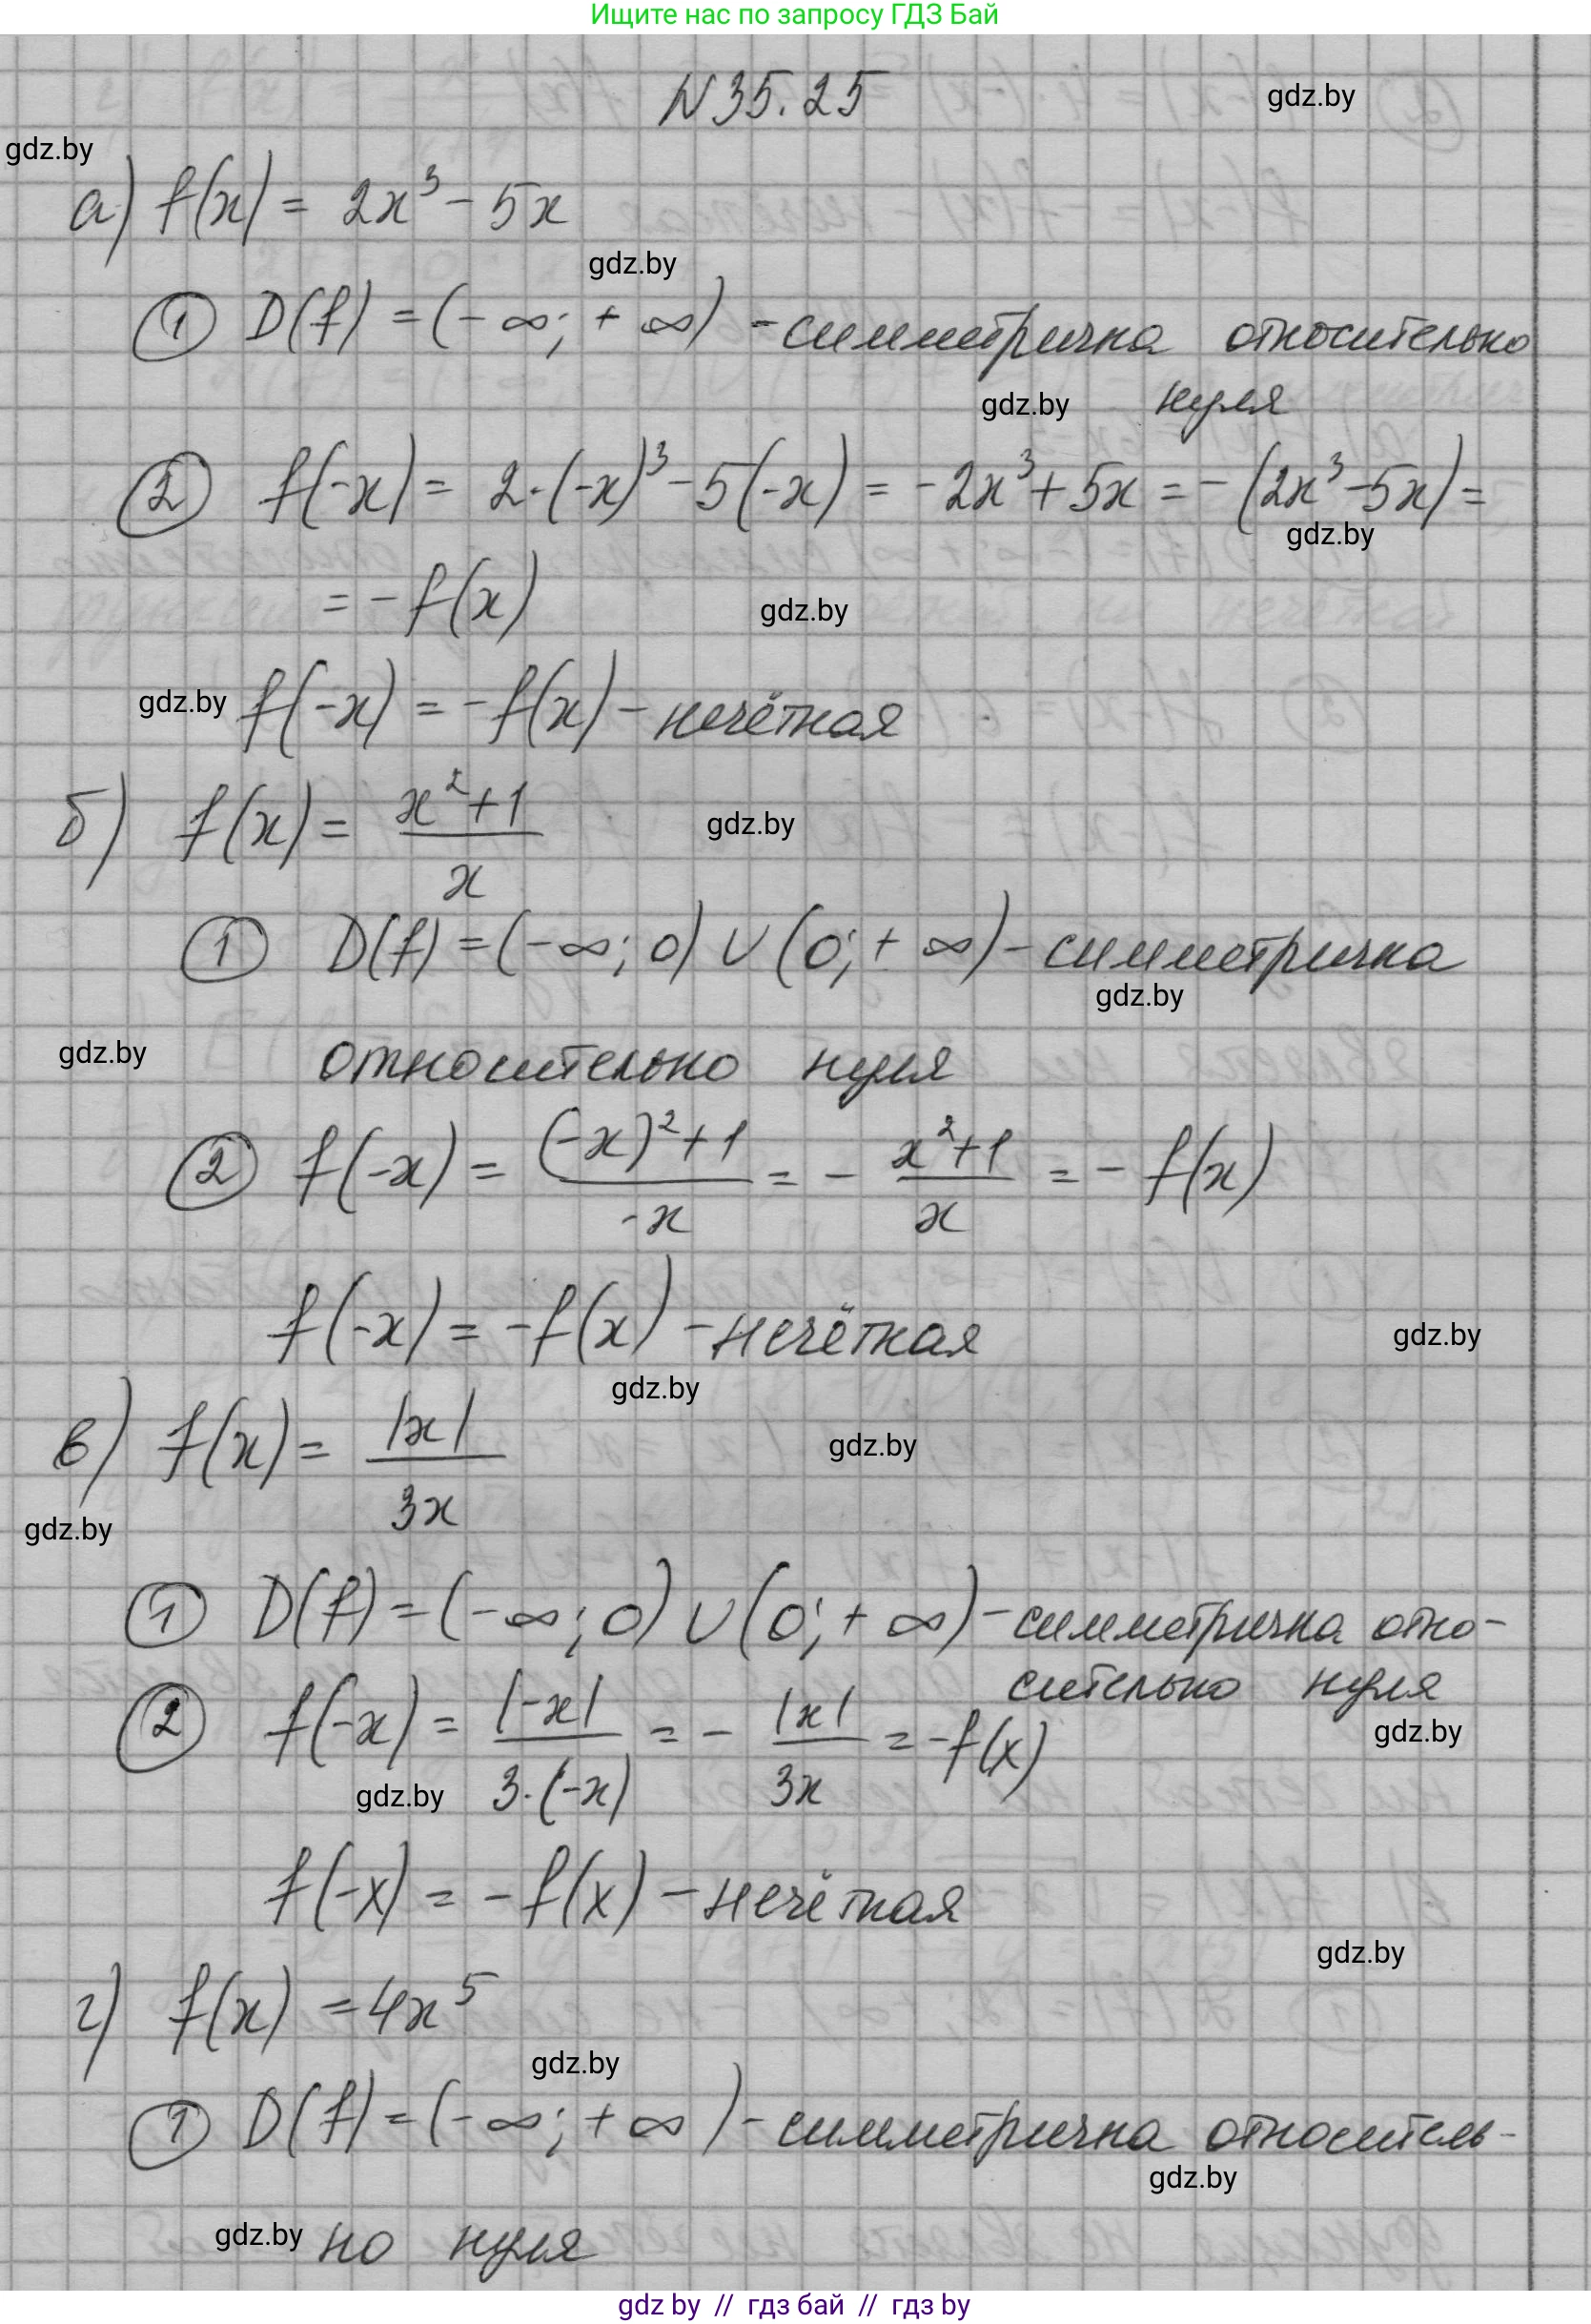 Ищите нас по запросу ГДЗ Бай
N 35.25
gdz.by
gdz.by
а) f(x) = 2x³ - 5x
gdz.by
① D(f) = (-∞; +∞) - симметрична относительно
gdz.by нуля
② f(-x) = 2·(-x)³ - 5(-x) = -2x³ + 5x = -(2x³ - 5x) =
gdz.by
= -f(x) gdz.by
gdz.by f(-x) = -f(x) - нечётная
б) f(x) = \frac{x² + 1}{x} gdz.by
① D(f) = (-∞; 0) ∪ (0; +∞) - симметрична
gdz.by
gdz.by относительно нуля
② f(-x) = \frac{(-x)² + 1}{-x} = - \frac{x² + 1}{x} = - f(x)
f(-x) = -f(x) - нечётная gdz.by
gdz.by
в) f(x) = \frac{|x|}{3x} gdz.by
gdz.by
① D(f) = (-∞; 0) ∪ (0; +∞) - симметрична отно-
сительно нуля
② f(-x) = \frac{|-x|}{3·(-x)} = - \frac{|x|}{3x} = -f(x) gdz.by
gdz.by
f(-x) = -f(x) - нечётная
gdz.by
г) f(x) = 4x⁵
gdz.by
① D(f) = (-∞; +∞) - симметрична относитель-
gdz.by
gdz.by но нуля
gdz by // гдз бай // гдз by